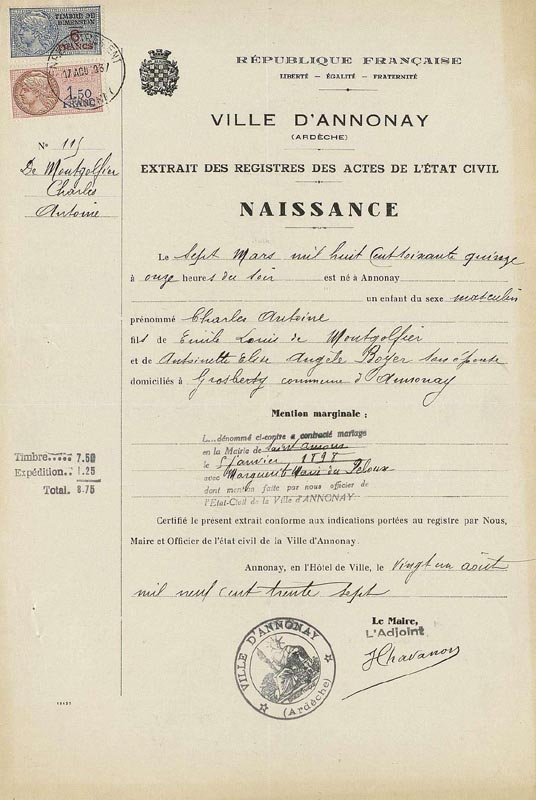 TIMBRE DE
DIMENSION
6
FRANCS
ENREGISTREMENT
17 AOU 1937
1.50
FRANC
RÉPUBLIQUE FRANÇAISE
LIBERTÉ — ÉGALITÉ — FRATERNITÉ
VILLE D'ANNONAY
(ARDÈCHE)
EXTRAIT DES REGISTRES DES ACTES DE L'ÉTAT CIVIL
NAISSANCE
N° 115
De Montgolfier
Charles
Antoine
Le Sept Mars mil huit cent soixante quinze
à onze heures du soir est né à Annonay
un enfant du sexe masculin
prénommé Charles Antoine
fils de Emile Louis de Montgolfier
et de Antoinette Elise Angèle Boyer son épouse
domiciliés à Grosberty commune d'Annonay
Mention marginale :
L... dénommé ci-contre a contracté mariage
en la Mairie de Saint
le 5 Janvier 1898
avec Marguerite Marie du Peloux
dont mention faite par nous officier de
l'Etat-Civil de la Ville d'ANNONAY
Timbre..... 7.50
Expédition.. 1.25
Total. 8.75
Certifié le présent extrait conforme aux indications portées au registre par Nous,
Maire et Officier de l'état civil de la Ville d'Annonay.
Annonay, en l'Hôtel de Ville, le vingt un août
mil neuf cent trente sept
Le Maire,
L'Adjoint
Chavanon
VILLE D'ANNONAY
(Ardèche)